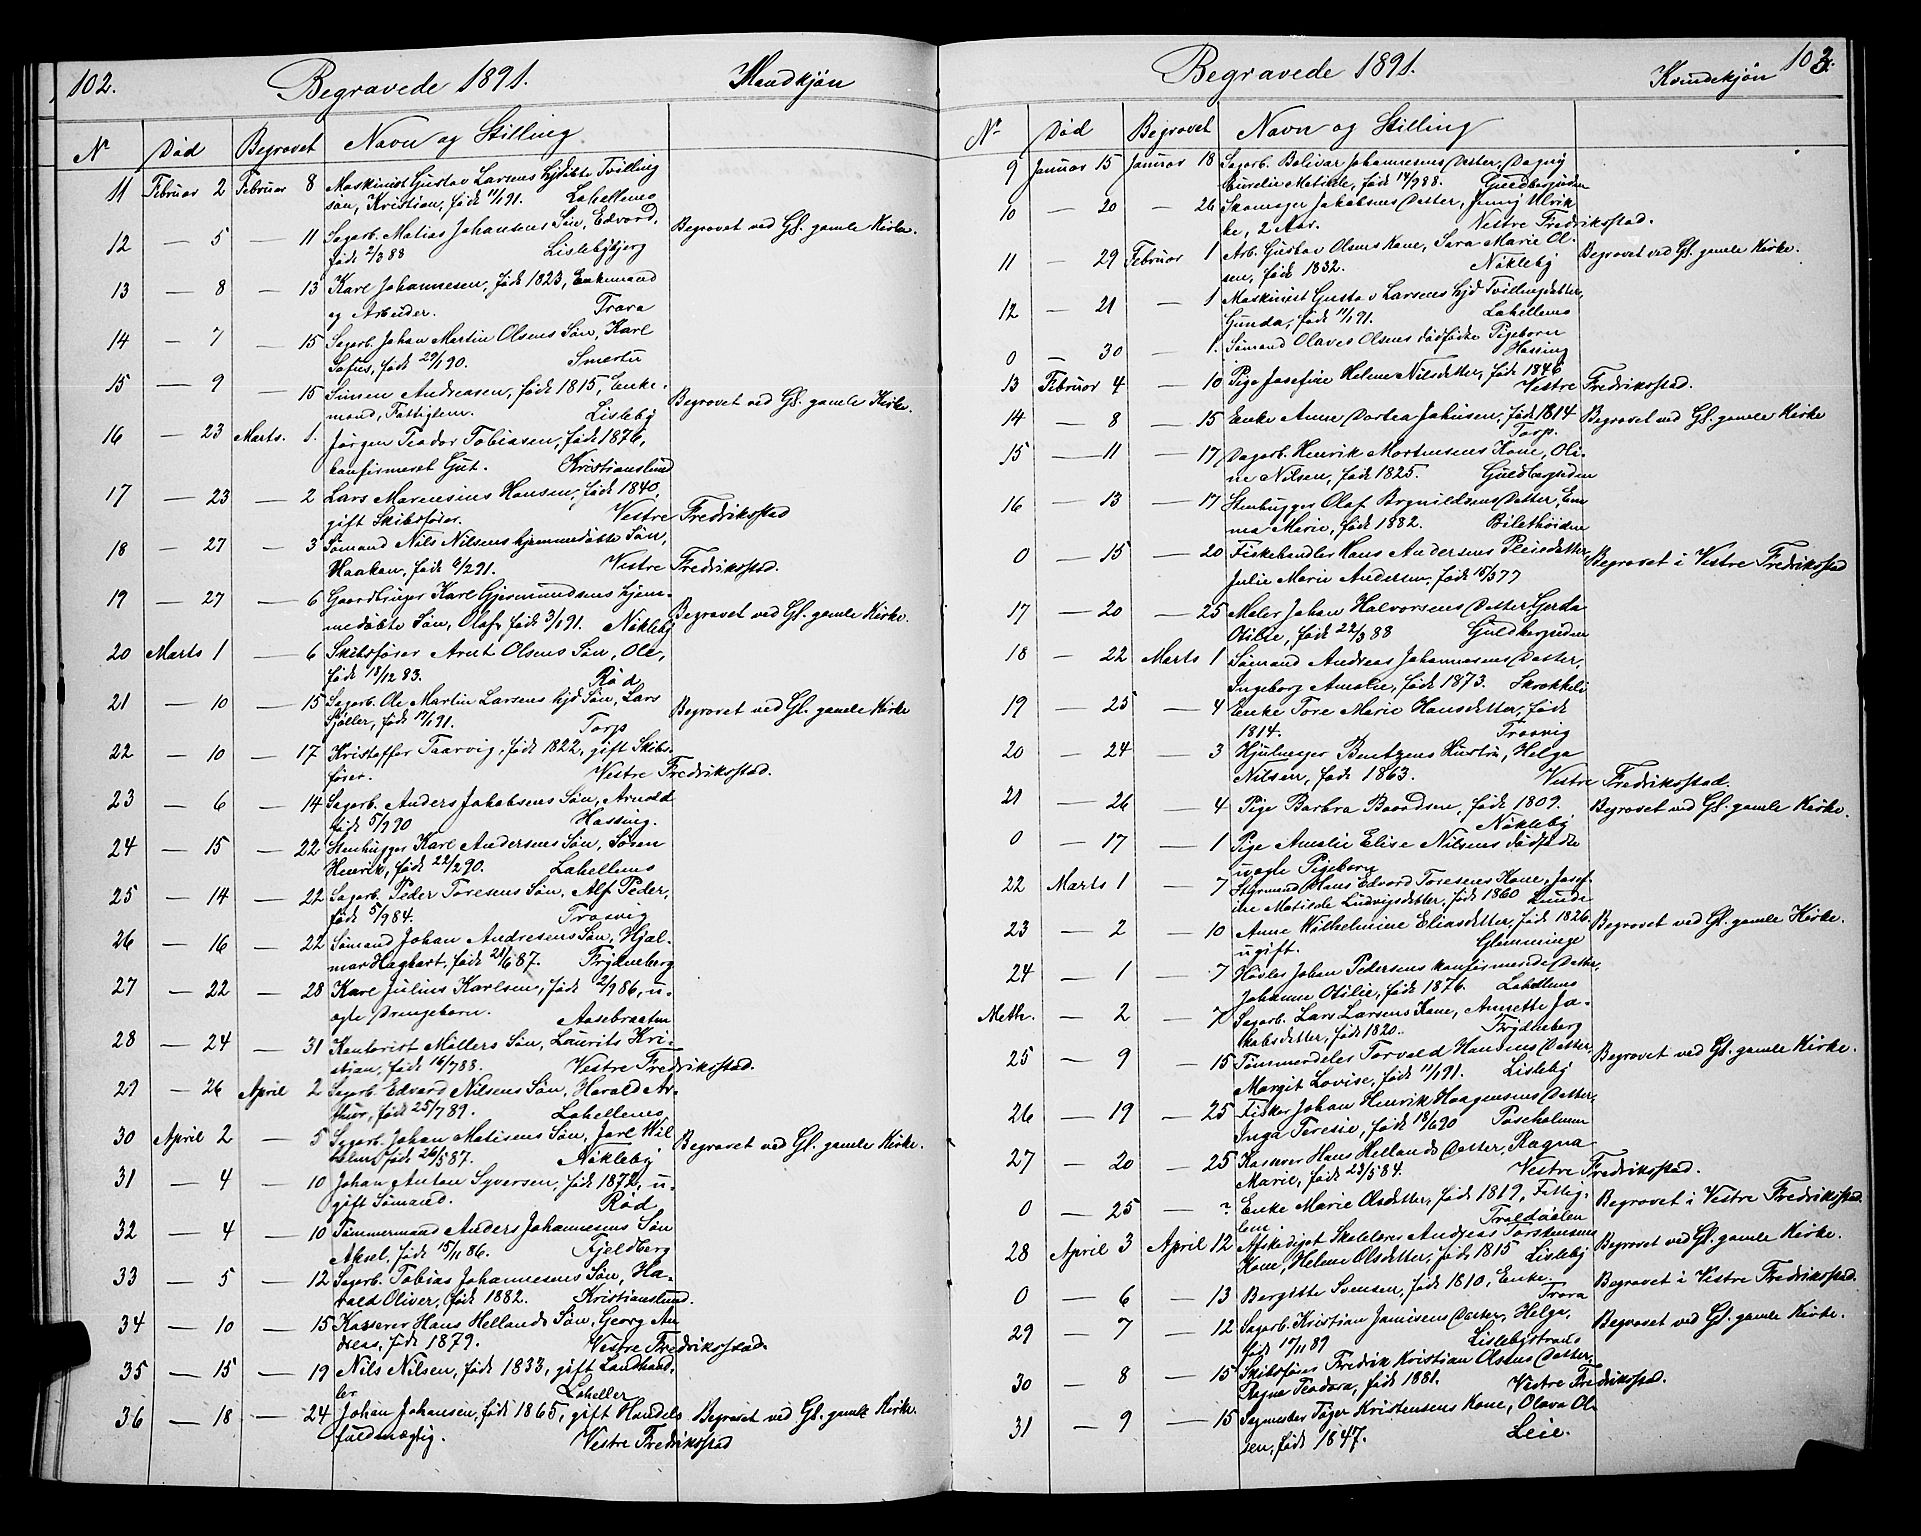 102.
Begravede 1891.
Mandkjøn
No Død Begravet Navn og Stilling
11 Februar 2 Februar 8 Maskinist Gustav Larsens hjdøbte Tvilling
søn, Kristian, født 11/1 91. Lahellens
12 — 5 — 11 Sagarb. Matias Johansens Søn, Edvard, Begravet ved Gl. gamle Kirke.
født 2/3 88 Lislebybjerg
13 — 8 — 13 Karl Johannesen, født 1823, Enkemand
og Arbeider. Trara
14 — 7 — 15 Sagarb. Johan Martin Olsens Søn, Karl
Sofus, født 29/1 90. Smertu
15 — 9 — 15 Simen Andreasen, født 1815, Enke-
mand, Fattiglem. Lisleby Begravet ved Gl. gamle Kirke.
16 — 23 Marts. 1. Jørgen Teodor Tobiasen, født 1876,
konfirmeret Gut. Kristianslund
17 — 23 — 2 Lars Marensius Hansen, født 1840,
gift Skibsfører. Vestre Fredriksstad
18 — 27 — 3 Sømand Nils Nilsens hjemmedøbte Søn,
Haakon, født 6/2 91. Vestre Fredriksstad.
19 — 27 — 6 Gaardbruger Karl Gjermundsens hjem-
medøbte Søn, Olaf, født 3/1 91. Nøkleby Begravet ved Gl. gamle Kirke.
20 Marts 1 — 6 Skibsfører Arnt Olsens Søn, Ole,
født 18/12 83. Rød
21 — 10 — 15 Sagarb. Ole Martin Larsens hjd Søn, Lars
født 17/1 91. Torp Begravet ved Gl. gamle Kirke
22 — 10 — 17 Kristoffer Taarvig, født 1822, gift Skibs-
fører. Vestre Fredriksstad.
23 — 6 — 14 Sagarb. Anders Jakobsens Søn, Arnold
født 5/9 90 Hassing.
24 — 15 — 22 Stenhugger Karl Andersens Søn, Søren
Henrik, født 22/2 90. Lahellens
25 — 14 — 22 Sagarb. Peder Toresens Søn, Alf Peder,
født 5/9 84. Traavig
26 — 16 — 22 Sømand Johan Andresens Søn, Hjal-
mar Hagbart, født 21/6 87. Frydenberg
27 — 22 — 28 Karl Julius Karlsen, født 2/9 86, u-
ægte Drengebarn. Aasebraaten
28 — 24 — 31 Kontorist Møllers Søn, Laurits Kri-
stian, født 16/7 88. Vestre Fredriksstad.
29 — 26 April 2 Sagarb. Edvard Nilsens Søn, Harald Ar-
thur, født 25/7 89. Lahellens
30 April 2 — 5 Sagarb. Johan Matisens Søn, Jarl Wil
helm, født 26/5 87. Nøkleby Begravet ved Gl. gamle Kirke.
31 — 4 — 10 Johan Anton Syversen, født 1872, u-
gift Sømand. Rød
32 — 4 — 10 Tømmermand Anders Johannesens Søn
Aksel, født 15/11 86. Fjeldberg
33 — 5 — 12 Sagarb. Tobias Johannesens Søn, Ha-
rald Oliver, født 1882. Kristianslund.
34 — 10 — 15 Kasserer Hans Hellands Søn, Georg An
dreas, født 1879. Vestre Fredriksstad.
35 — 15 — 19 Nils Nilsen, født 1833, gift Landhand-
ler Laheller
36 — 18 — 24 Johan Johansen, født 1865, gift Handels Begravet ved Gl. gamle Kirke.
fuldmægtig. Vestre Fredriksstad
103.
Begravede 1891.
Kvindekjøn
No Død Begravet Navn og Stilling
9 Januar 15 Januar 18 Sagarb. Bolivar Johannesens Datter, Dagny
Aurelie Matilde, født 14/9 88. Guldbergsiden
10 — 20 — 26 Skomager Jakobsens Datter, Jenny Ulrik
ke, 2 Aar. Vestre Fredriksstad.
11 — 29 Februar 1 Arb. Gustav Olsens Kone, Sara Marie Ol-
sen, født 1832. Nøkleby Begravet ved Gl. gamle Kirke.
12 — 21 — 1 Maskinist Gustav Larsens hjd Tvillingdatter,
Gunda, født 11/1 91. Lahellens
0 — 30 — 1. Sømand Olaves Olsens dødfødte Pigebarn
Hassing
13 Februar 4 — 10 Pige Josefine Helene Nilsdatter, født 1846
Vestre Fredriksstad.
14 — 8 — 15 Enke Anne Dortea Johnsen, født 1814 Begravet ved Gl. gamle Kirke
Torp.
15 — 11 — 17 Dagarb. Henrik Mortensens Kone, Oli-
ne Nilsen, født 1825. Guldbergsiden
16 — 13 — 17 Stenhugger Olaf Brynildsens Datter, Em
ma Marie, født 1882. Biletholden
0 — 15 — 20 Fiskehandler Hans Andersens Pleiedatter,
Julie Marie Andersen, født 15/3 77 Begravet i Vestre Fredriksstad
17 — 20 — 25 Maler Johan Halvorsens Datter Gerda
Otilie, født 22/3 88 Guldbergsiden
18 — 22 Marts 1 Sømand Andreas Johannesens Datter,
Ingeborg Amalie, født 1873. Skrokkeli
19 — 25 — 4 Enke Tore Marie Hansdatter, født
1814. Traavig
20 — 24 — 3 Hjulmager Bentzens Hustru, Helga
Nilsen, født 1863. Vestre Fredriksstad.
21 — 26 — 4 Pige Barbra Baardsen, født 1809. Begravet ved Gl. gamle Kirke.
Nøkleby
0 — 17 — 1 Pige Amalie Elise Nilsens dødfødte
uægte Pigebarn
22 Marts 1 — 7 Styrmand Hans Edvard Toresens Kone, Josef-
ine Matilde Ludvigsdatter, født 1860 Lunde
23 — 2 — 10 Anne Wilhelmine Eliasdatter, født 1826. Begravet ved Gl. gamle Kirke.
ugift. Glemminge
24 — 1 — 7 Høvler Johan Pedersens konfirmerede Datter,
Johanne Otilie, født 1876. Lahellens
Meth. — 2 — 7 Sagarb. Lars Larsens Kone, Annette Ja-
kobsdatter, født 1820. Frydenberg
25 — 9 — 15 Tømmerdeler Torvald Hansens Datter
Margit Lovise, født 11/1 91. Lisleby Begravet ved Gl. gamle Kirke.
26 — 19 — 25 Fisker Johan Henrik Haagensens Datter,
Inga Teresie, født 18/6 90 Paseholmen
27 — 20 — 25 Kasserer Hans Hellands Datter, Ragna
Marie, født 23/5 84. Vestre Fredriksstad.
0 — 25 — ? Enke Marie Olsdatter, født 1819, Fattig-
lem. Traldalen Begravet i Vestre Fredriksstad.
28 April 3 April 12 Afskediget Skolelærer Andreas Torstensens
Kone, Helene Olsdatter, født 1815 Lisleby Begravet ved Gl. gamle Kirke.
0 — 6 — 13 Bergitte Svensen, født 1810, Enke. Begravet i Vestre Fredriksstad.
Trara
29 — 7 — 12 Sagarb. Kristian Jensens Datter, Helga,
født 17/11 89 Lislebystrand Begravet ved Gl. gamle Kirke.
30 — 8 — 15 Skibsfører Fredrik Kristian Olsens Datter,
Ragna Teodora, født 1881. Vestre Fredriksstad.
31 — 9 — 15 Sagmester Tøger Kristensens Kone, Olava Ol-
sen, født 1847. Leie.